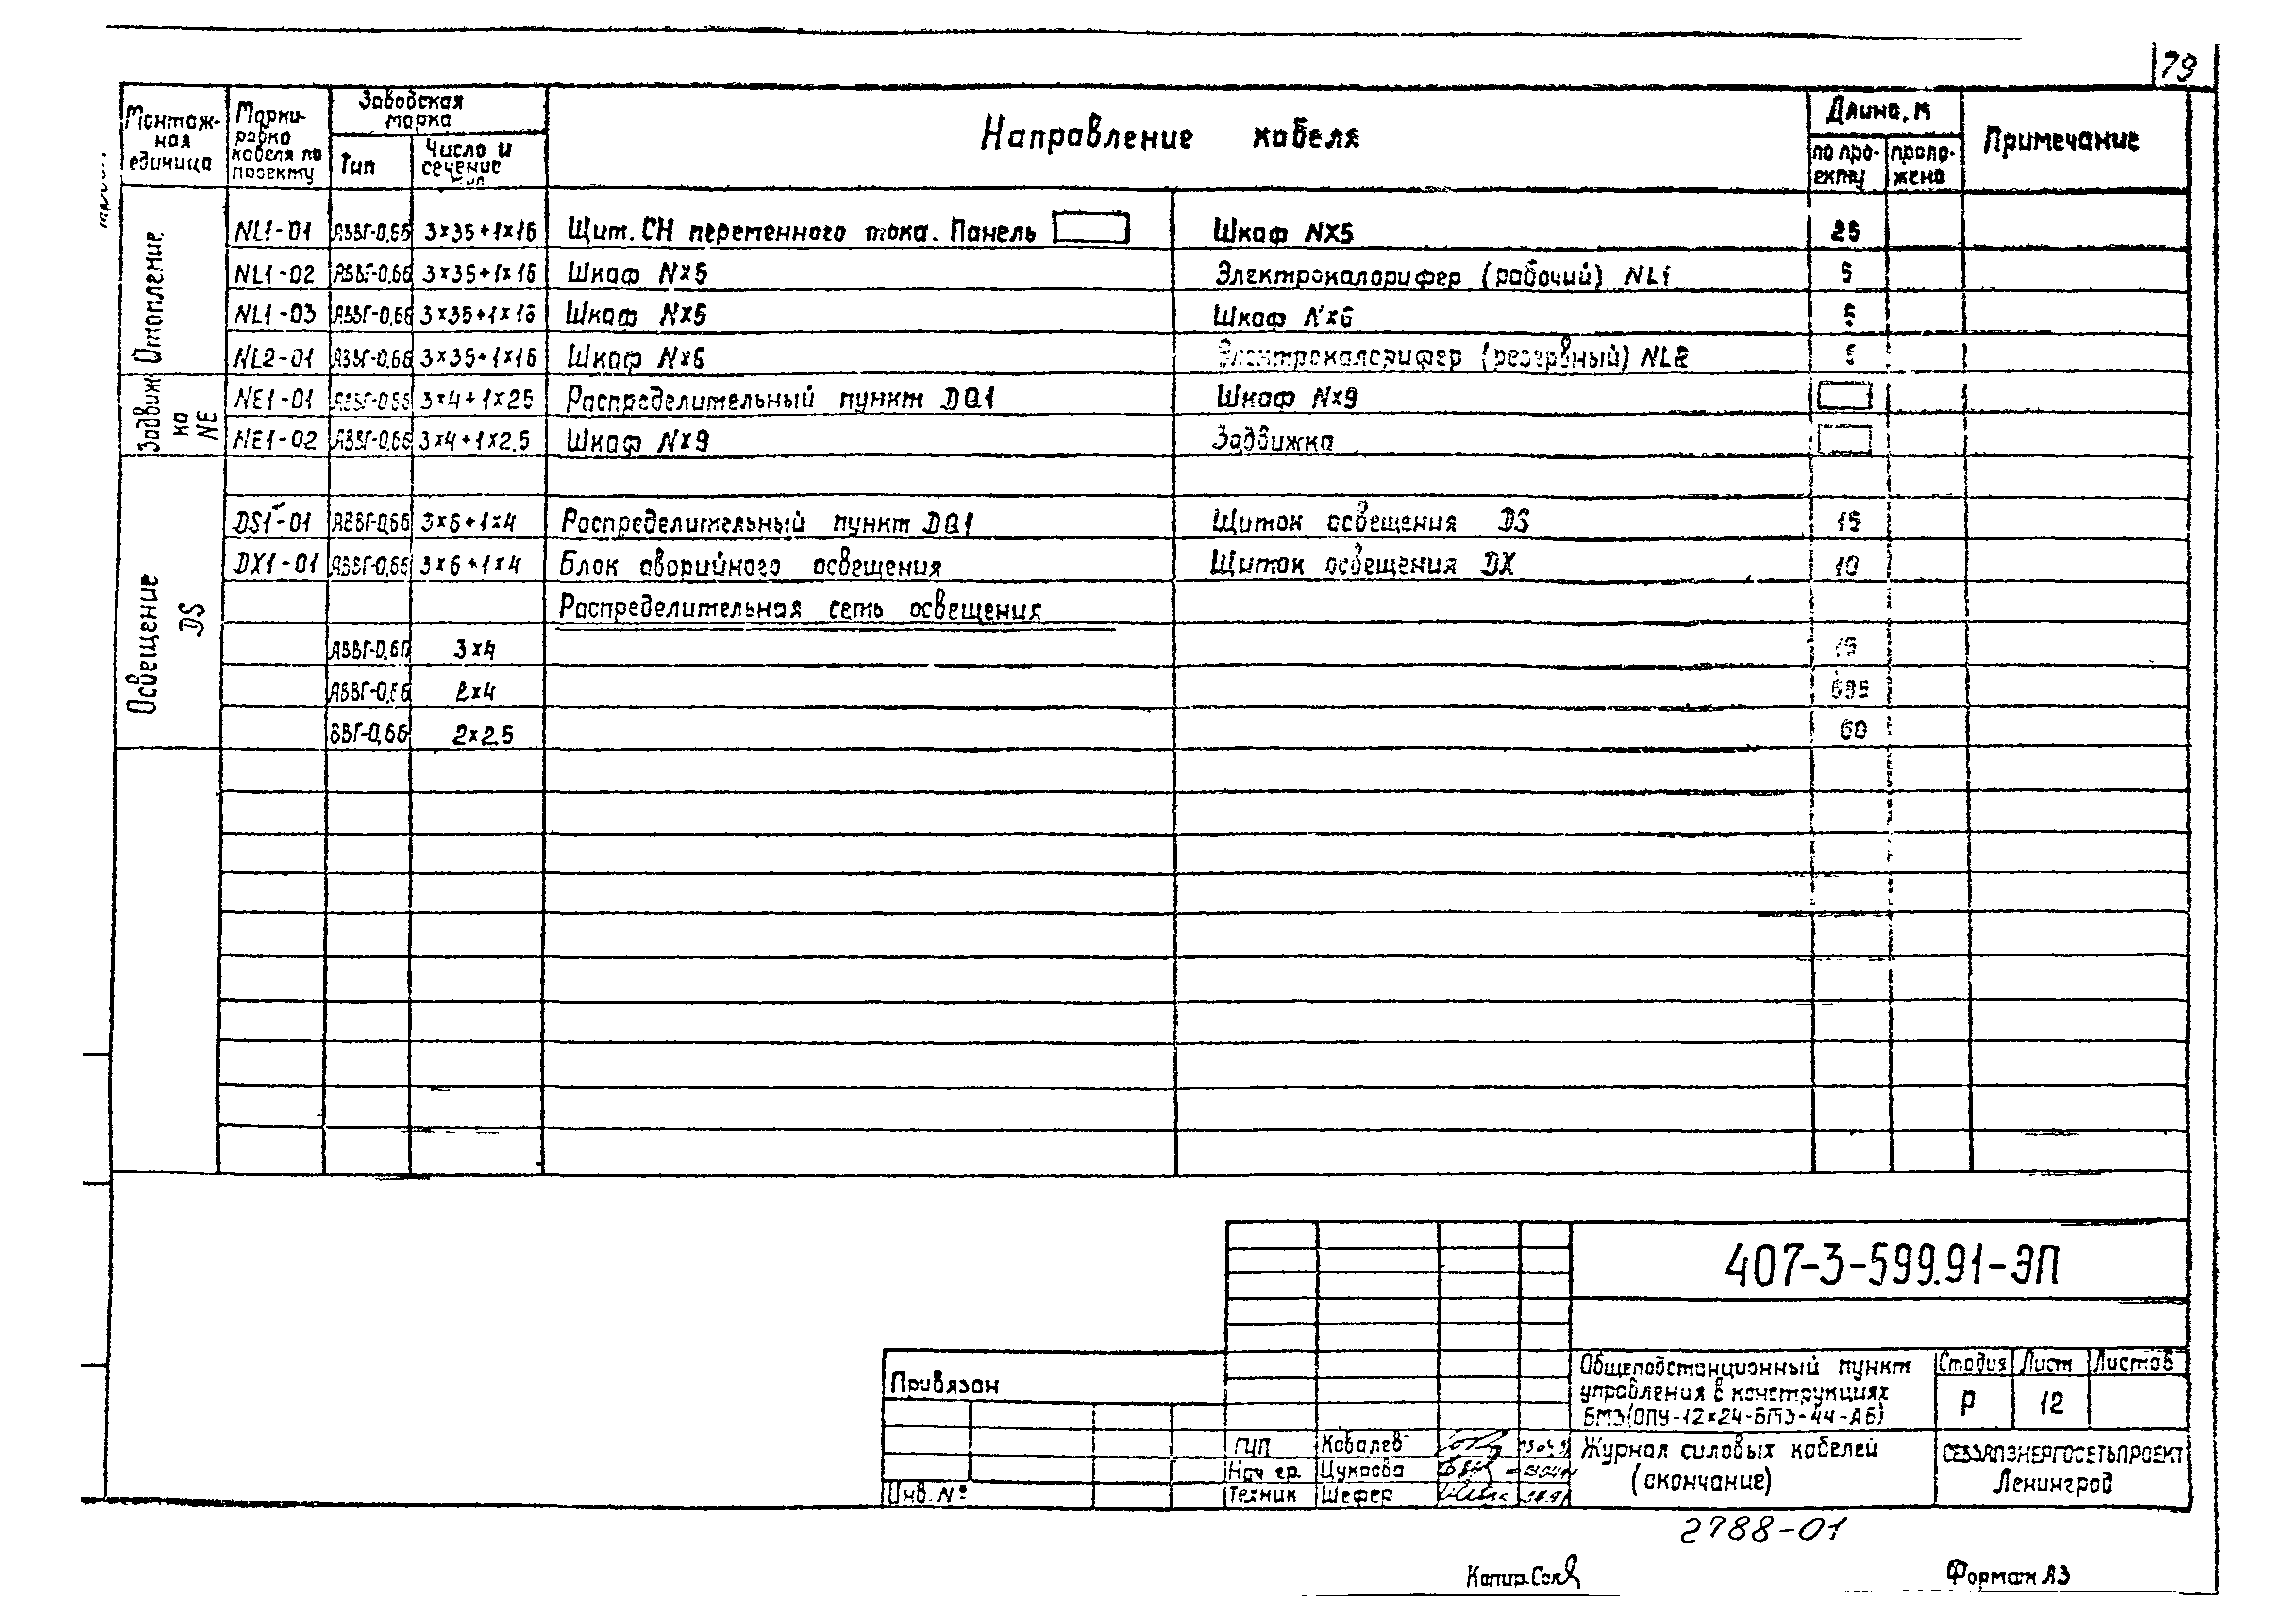 79
Монтаж-
ная
единица
Марки-
ровка
кабеля по
проекту
Заводская
марка
Тип
Число и
сечение
жил
Направление кабеля
Длина, м
по про-
екту
проло-
жено
Примечание
Отопление
NL1-01 АВВГ-0,66 3×35+1×16 Щит. СН переменного тока. Панель Шкаф N×5 25
NL1-02 АВВГ-0,66 3×35+1×16 Шкаф N×5 Электрокалорифер (рабочий) NL1 5
NL1-03 АВВГ-0,66 3×35+1×16 Шкаф N×5 Шкаф N×6 5
NL2-01 АВВГ-0,66 3×35+1×16 Шкаф N×6 Электрокалорифер (резервный) NL2 5
Задвиж
ка
NE
NE1-01 АВВГ-0,66 3×4+1×25 Распределительный пункт DQ1 Шкаф N×9
NE1-02 АВВГ-0,66 3×4+1×2.5 Шкаф N×9 Задвижка
Освещение
DS
DS1-01 АВВГ-0,66 3×6+1×4 Распределительный пункт DQ1 Щиток освещения DS 15
DX1-01 АВВГ-0,66 3×6+1×4 Блок аварийного освещения Щиток освещения DX 10
Распределительная сеть освещения
АВВГ-0,66 3×4
АВВГ-0,66 2×4
ВВГ-0,66 2×2.5 60
407-3-599.91-ЭП
Привязан
Инв. №
Общеподстанционный пункт
управления в конструкциях
БМЗ(ОПУ-12×24-БМЗ-44-АБ)
Стадия Лист Листов
Р 12
ГИП Ковалев
Нач гр. Цукрова
Техник Шефер
Журнал силовых кабелей
(окончание)
СЕВЗАПЭНЕРГОСЕТЬПРОЕКТ
Ленинград
2788-01
Копир.
Формат А3